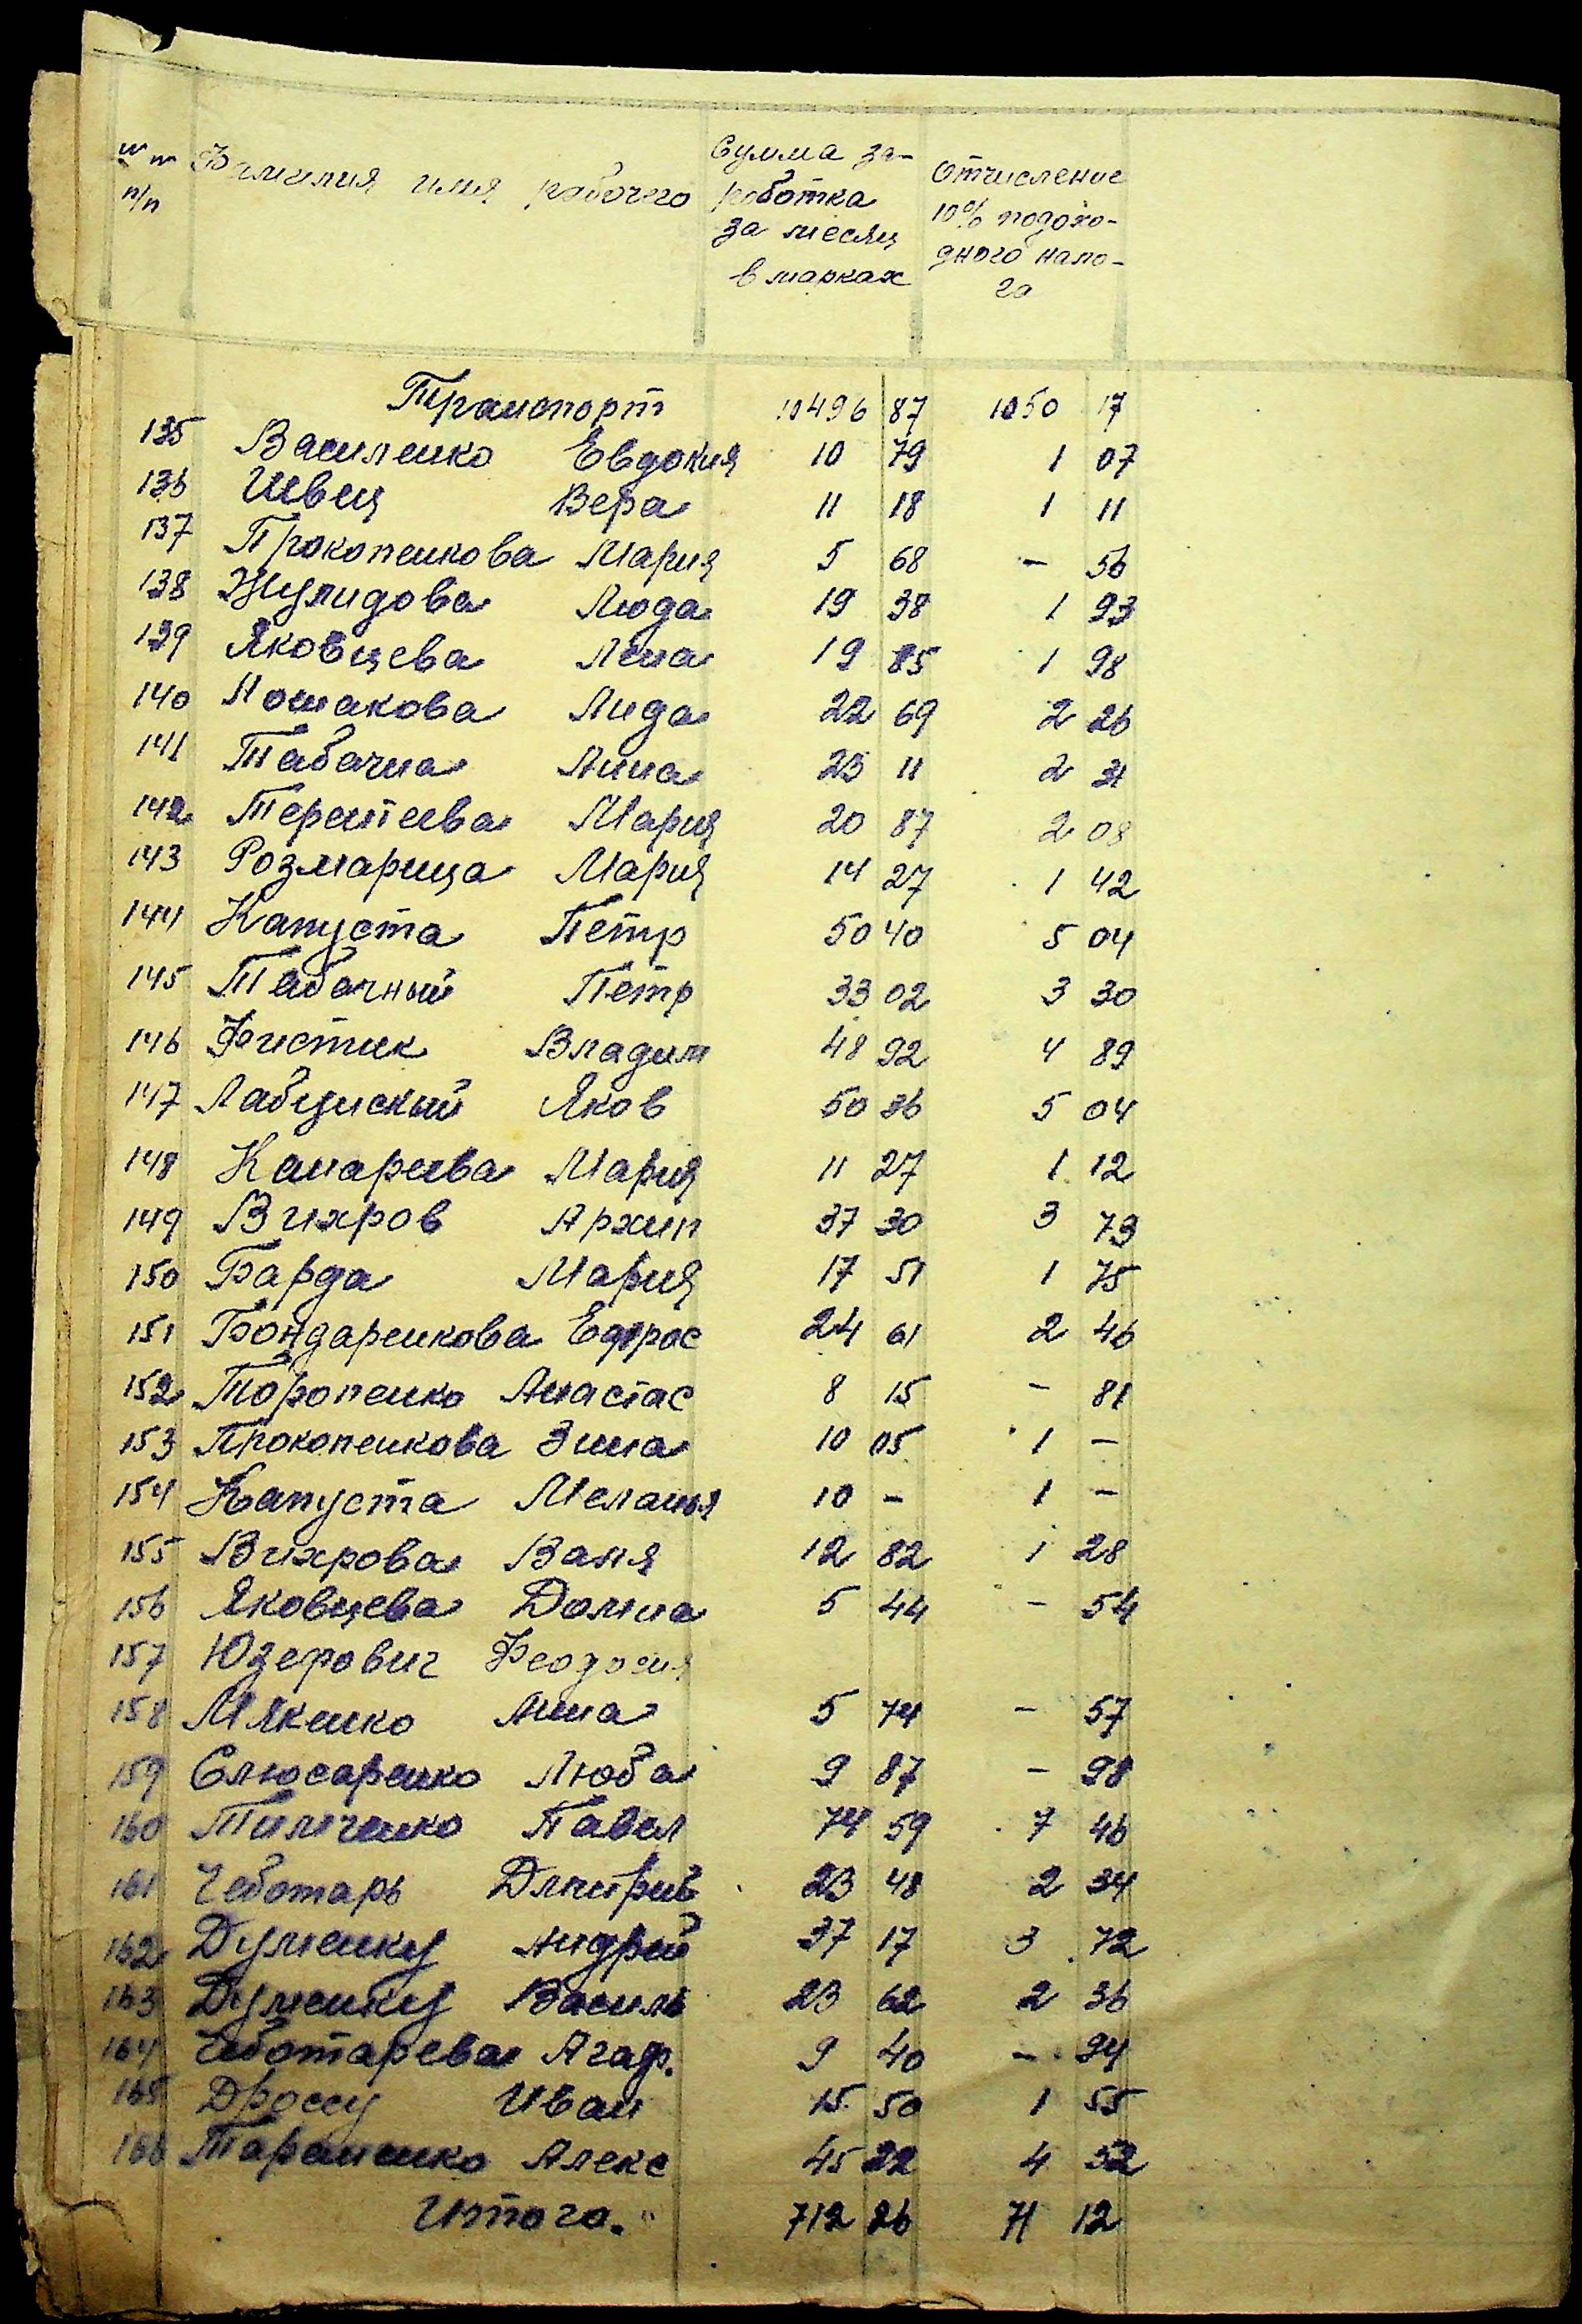 №№ п/п Фамилия имя рабочего Сумма заработка за месяц в марках Отчисление 10% подоходного налога
Транспорт 10496 87 1050 17
135 Василенко Евдокия 10 79 1 07
136 Швец Вера 11 18 1 11
137 Прокопенкова Мария 5 68 – 56
138 Жулидова Люда 19 38 1 93
139 Яковцева Лена 19 85 1 98
140 Ношакова Лида 22 69 2 26
141 Табачна Анна 23 11 2 31
142 Терентева Мария 20 87 2 08
143 Розмарица Мария 14 27 1 42
144 Капуста Петр 50 40 5 04
145 Табачный Петр 33 02 3 30
146 Фистик Владим 48 92 4 89
147 Лабунский Яков 50 36 5 04
148 Канарева Мария 11 27 1 12
149 Вихров Архип 37 30 3 73
150 Барда Мария 17 51 1 75
151 Бондаренкова Ефрос 24 61 2 46
152 Торопенко Анастас 8 15 – 81
153 Прокопенкова Зина 10 05 1 –
154 Капуста Мелания 10 – 1 –
155 Вихрова Валя 12 82 1 28
156 Яковцева Домна 5 44 – 54
157 Юзерович Феодосия
158 Мякенко Анна 5 74 – 57
159 Слюсаренко Люба 9 87 – 98
160 Тимченко Павел 74 59 7 46
161 Чеботарь Дмитрий 23 48 2 34
162 Думенку Андрей 37 17 3 72
163 Думенку Василь 23 62 2 36
164 Чеботарева Агаф. 9 40 – 94
165 Дроссу Иван 15 50 1 55
166 Тараненко Алекс 45 22 4 52
Итого. 712 26 71 12